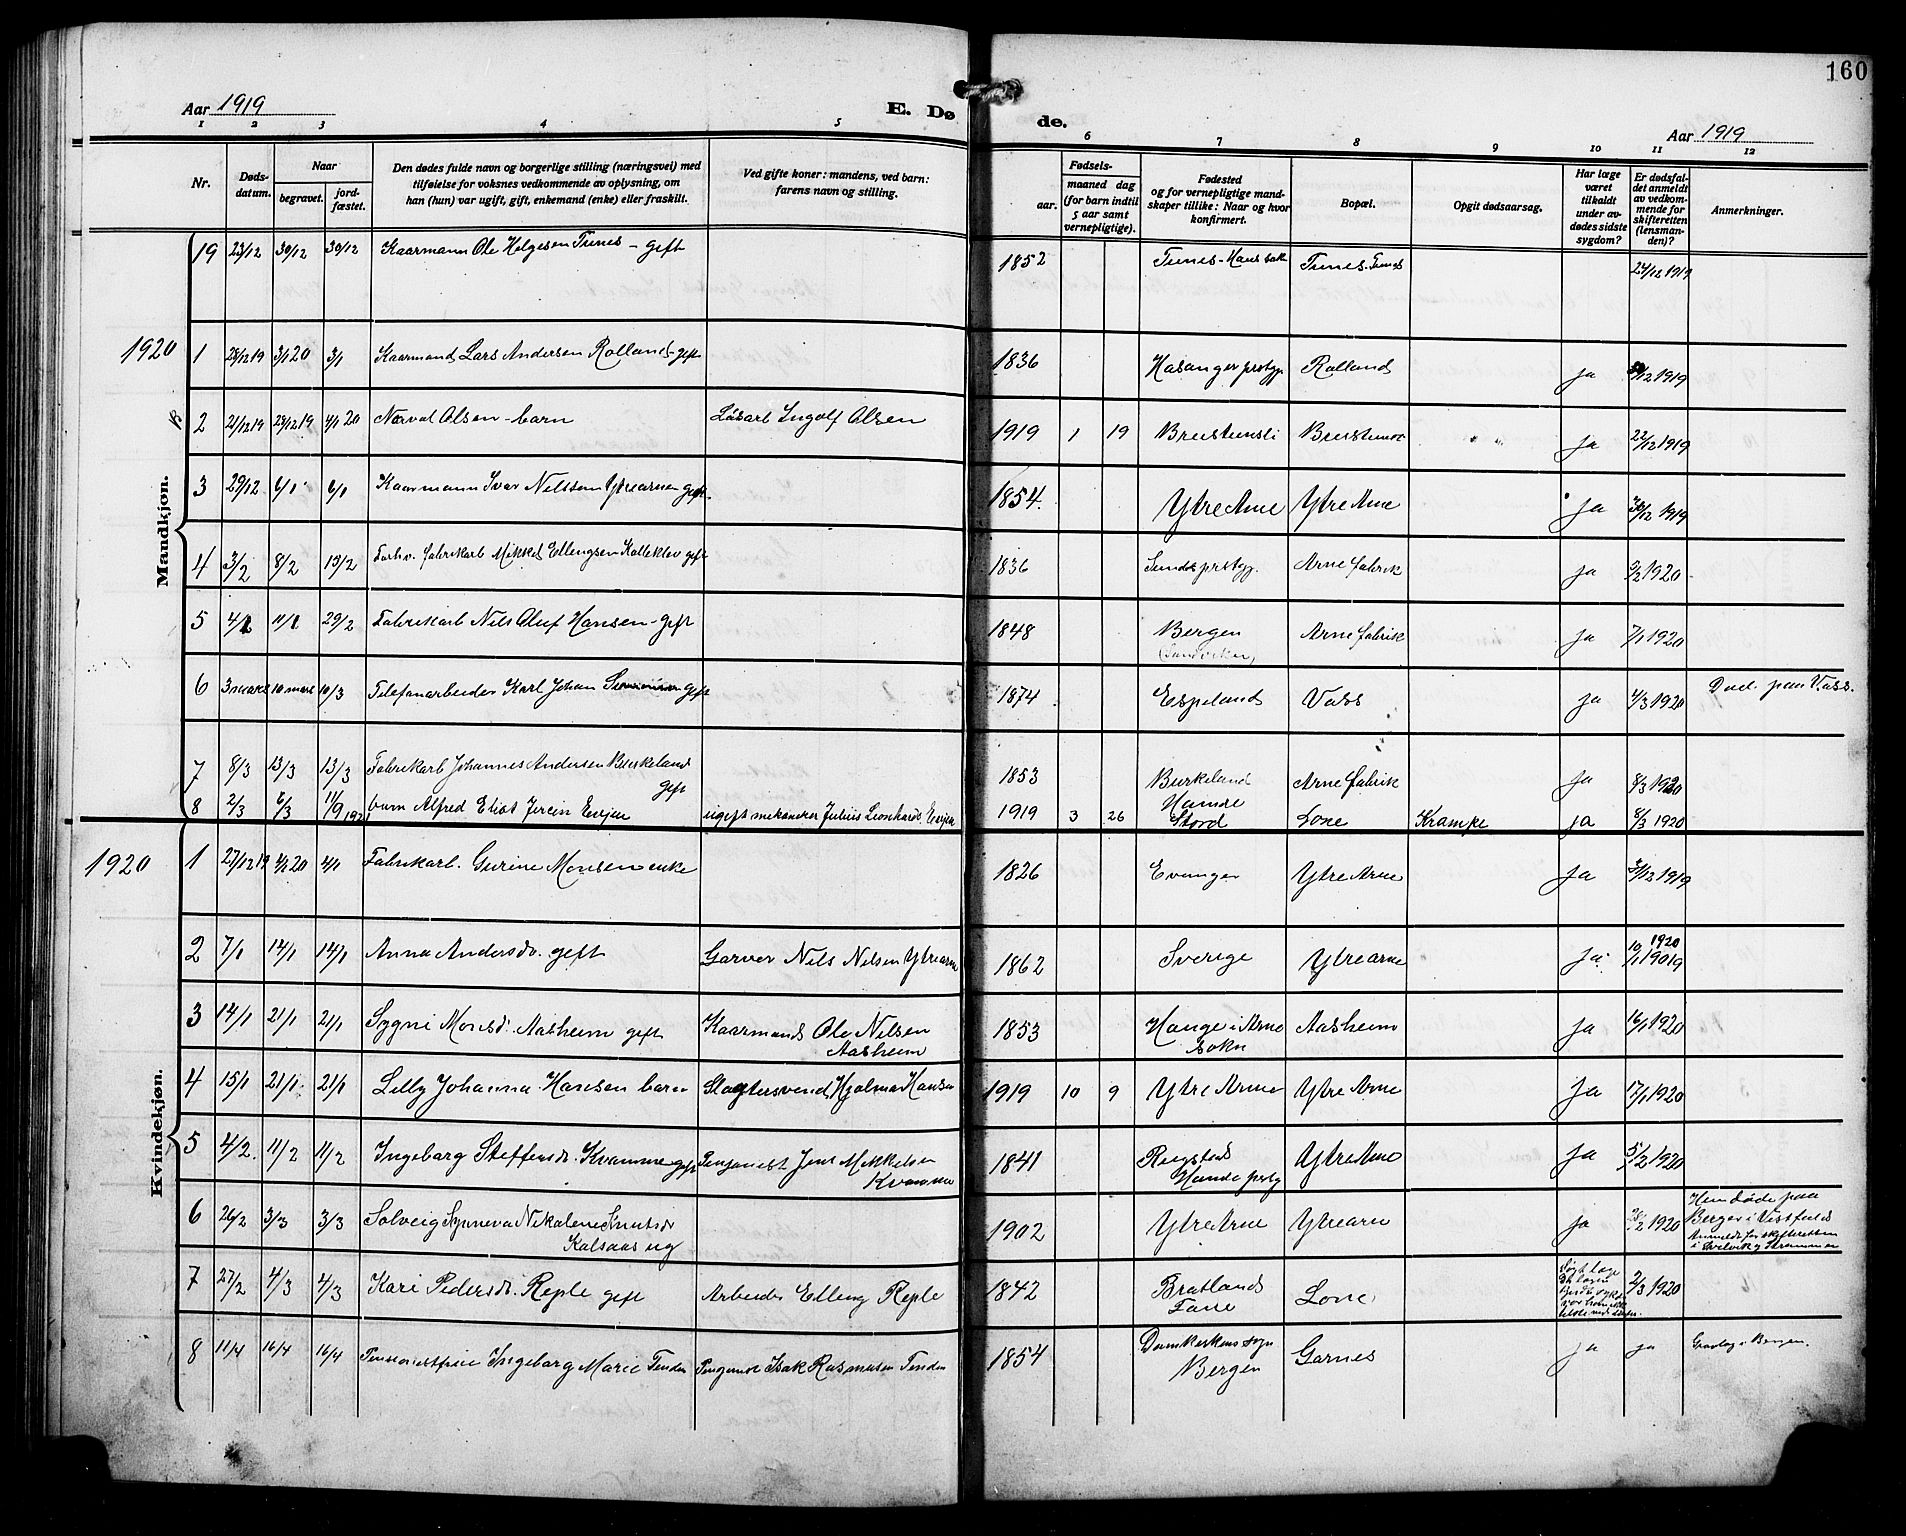 160
Aar 1919
E. Dø
de.
Aar 1919
1 2 3 4 5 6 7 8 9 10 11 12
Nr.
Døds-
datum.
Naar
begravet.
jord-
fæstet.
Den dødes fulde navn og borgerlige stilling (næringsvei) med
tilføielse for voksnes vedkommende av oplysning, om
han (hun) var ugift, gift, enkemand (enke) eller fraskilt.
Ved gifte koner: mandens, ved barn:
farens navn og stilling.
Fødsels-
aar.
maaned dag
(for barn indtil
5 aar samt
vernepligtige).
Fødested
og for vernepligtige mand-
skaper tillike: Naar og hvor
konfirmert.
Bopæl.
Opgit dødsaarsag.
Har læge
været
tilkaldt
under av-
dødes sidste
sygdom?
Er dødsfal-
det anmeldt
av vedkom-
mende for
skifteretten
(lensman-
den)?
Anmerkninger.
Mandkjøn.
19 23/12 30/12 30/12 Kaarmann Ole Helgesen Tunes – gift 1852 Tunes - Haus sokn Tunes. Tunes 24/12 1919
1920 1 28/12 19 3/1 20 3/1 Kaarmand Lars Andersen Rolland - gift 1836 Hasanger prstgj. Rolland ja /12 1919
2 21/12 19 29/12 19 4/1 20 Norval Olsen – barn Løsarb Ingolf Olsen 1919 1 19 " " ja 22/12 1919
3 29/12 6/1 6/1 Kaarmann Ivar Nilssen Ytrearne gift 1854. Ytre Arne Ytre Arne ja 30/12 1919
4 3/2 8/2 13/2 Forhv. fabrikarb Mikkel Ellingsen Kalleklev gift 1836 Sunds prstgj. Arne fabrik ja /2 1920
5 4/1 11/1 29/2 Fabrikarb Nils Oluf Hansen – gift 1848 Bergen Arne fabrik ja 7/1 1920
(Sandviken)
6 3 mars 10 mars 10/3 Telefonarbeider Karl Johan gift 1874 Espeland Voss ja 4/3 1920 Død paa Voss.
7 8/3 13/3 13/3 Fabrikarb Johannes Andersen Birkeland 1853 Birkeland Arne fabrik ja 8/3 1920
gift
8 2/3 6/3 11/9 192 barn Alfred Eliot Evjen ugift mekaniker Julius Leonhard Evjen 1919 3 26 Stord Lone Krampe ja 8/3 1920
Kvindekjøn.
1920 1 27/12 19 4/1 20 4/1 Fabrikarb. Gurine Monsen enke 1826 Evanger Ytre Arne Ja 3/12 1919
2 7/1 14/1 14/1 Anna Andersdr. gift Garver Nils Nilsen Ytrearne 1862 Sverige Ytrearne Ja. 10/1 1920
3 14/1 21/1 21/1 Sygni Monsd. Aasheim gift Kaarmand Ole Nilsen 1853 Hauge i Arne Aasheim ja 16/1 1920
Aasheim sokn
4 15/1 21/1 21/1 Lilly Johanna Hansen barn Slagtersvend Hjalmar Hansen 1919 10 9 Ytre Arne Ytre Arne Ja 17/1 1920
5 4/2. 11/2 11/2 Ingeborg Steffensd. Kvamme gift Pensjonist Jens Mikkelsen 1841 Ytre Arne Ja 5/2 1920
Kvamme prstgj
6 26/2 3/3 3/3 Solveig Synneva Nikoline Knutsdr 1902 Ytre Arne Ytrearne ja /2 1920 Hun døde paa
Kalsaas ug Berger i Vestfold.
Anmeldt for skifteretten
i Svelvik og Strømm
7 27/2 4/3 4/3 Kari Pedersd. Reple gift Arbeider Elling Reple 1842 Bratland Lone Søgt læge 2/3 1920
Fane
8 11/4 16/4 16/4 Ingeborg Marie Tenden Isak Rasmusen Tenden 1854 Domkirkens sogn Garnes ja ja Gravlagt i Bergen.
Bergen